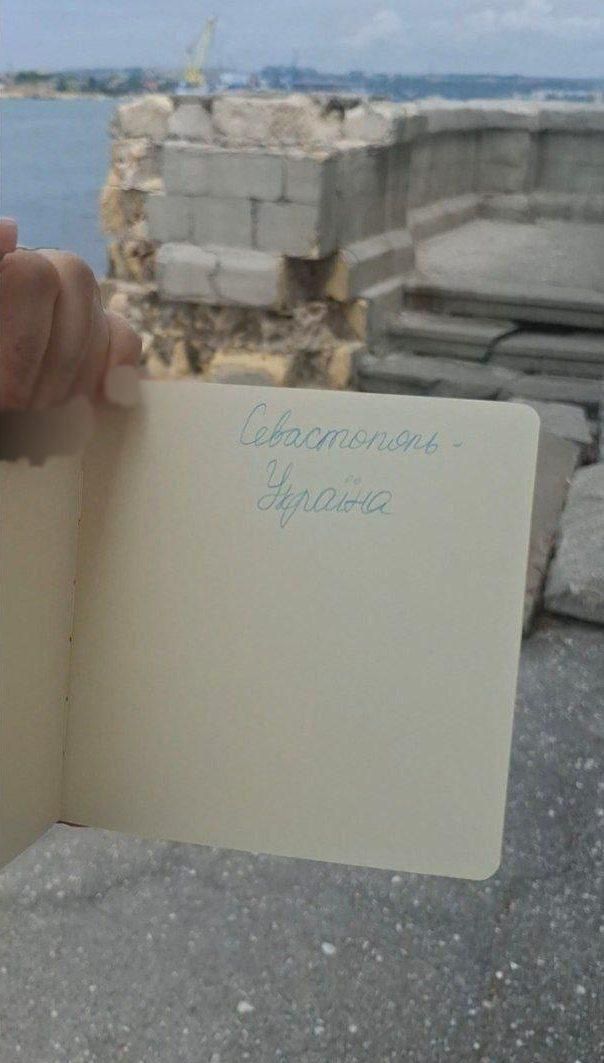 Севастополь -
Україна